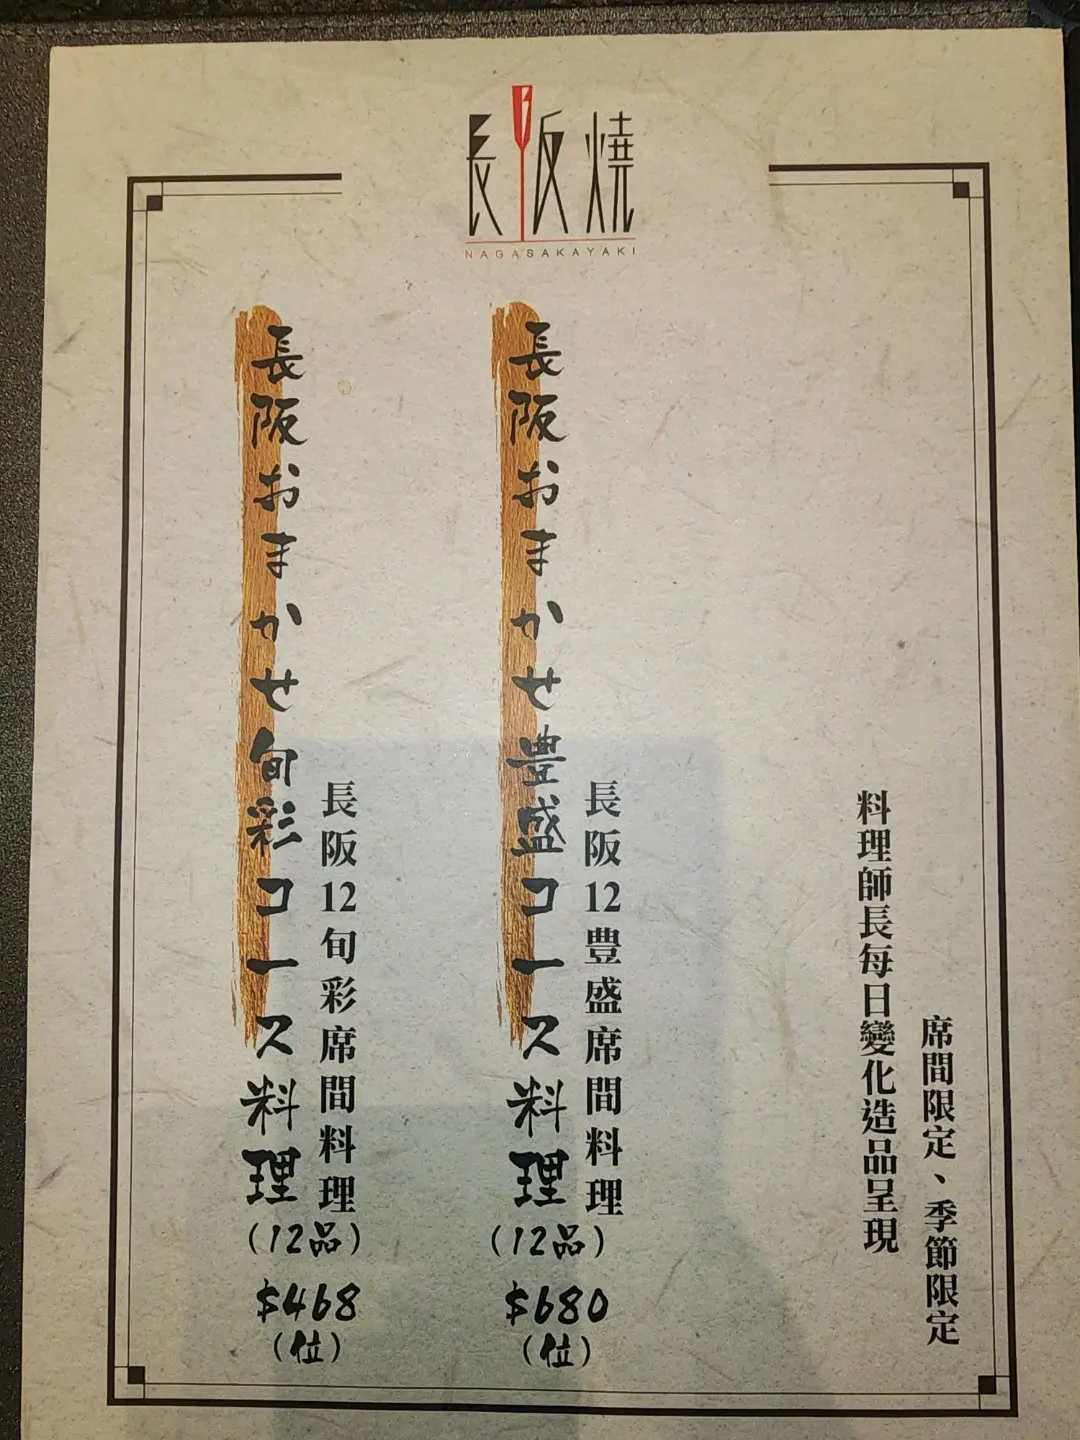 長阪燒
NAGASAKAYAKI
席間限定、季節限定
料理師長每日變化造品呈現
長阪12豊盛席間料理
長阪おまかせ豊盛コース料理
(12品)
$680
(位)
長阪12旬彩席間料理
長阪おまかせ旬彩コース料理
(12品)
$468
(位)